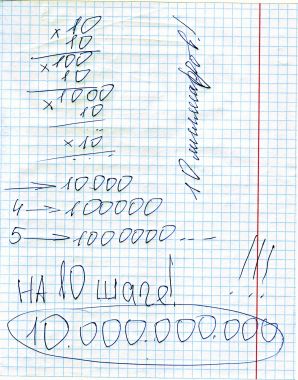 × 10
10
× 100
10
× 1000
10
× 10
. . . .
→ 10000
4 → 100000
5 → 1000000 - - -
10 миллиардов!
!!!
. . .
НА 10 шаге!
10.000.000.000